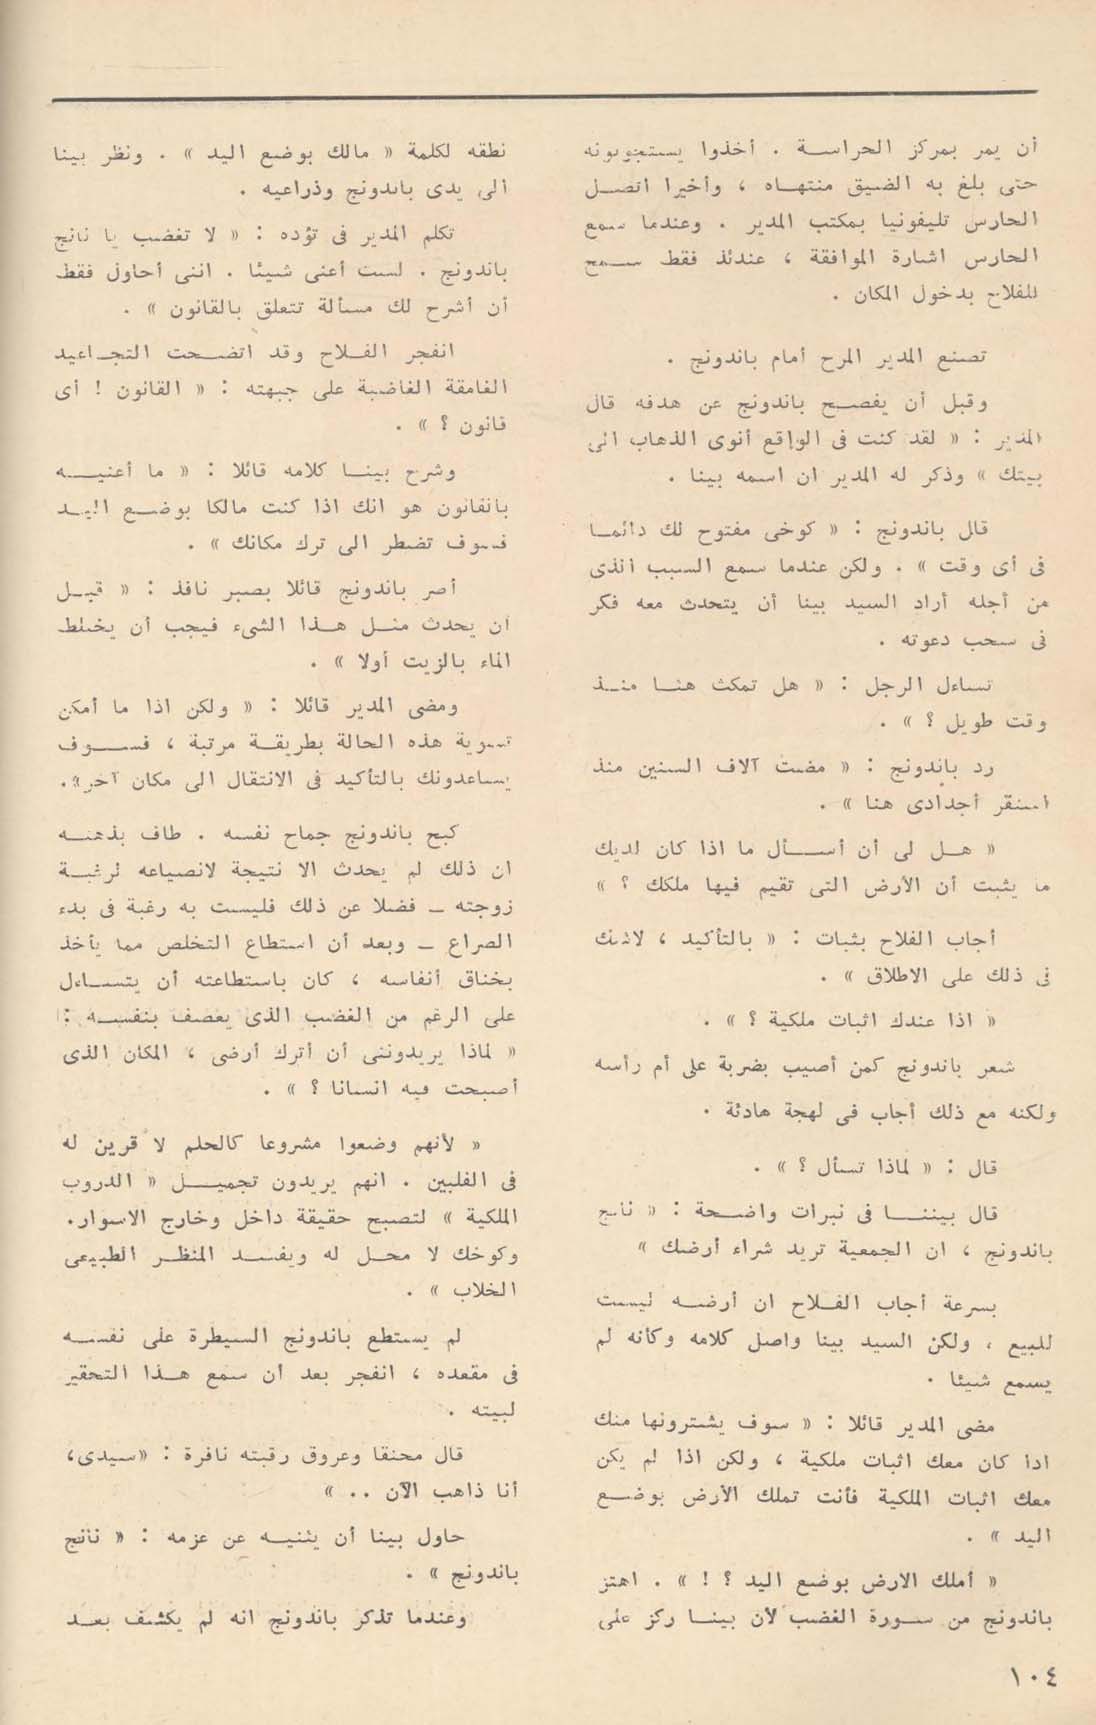 أن يمر بمركز الحراسة . أخذوا يستجوبونه
حتى بلغ به الضيق منتهاه ، وأخيرا اتصل
الحارس تليفونيا بمكتب المدير . وعندما سمع
الحارس اشارة الموافقة ، عندئذ فقط سمح
للفلاح بدخول المكان .
تصنع المدير المرح أمام باندونج .
وقبل أن يفصح باندونج عن هدفه قال
المدير : « لقد كنت فى الواقع أنوى الذهاب الى
بيتك » وذكر له المدير ان اسمه بينا .
قال باندونج : « كوخى مفتوح لك دائما
فى أى وقت » . ولكن عندما سمع السبب الذى
من أجله أراد السيد بينا أن يتحدث معه فكر
فى سحب دعوته .
تساءل الرجل : « هل تمكث هنا منذ
وقت طويل ؟ » .
رد باندونج : « مضت آلاف السنين منذ
استقر أجدادى هنا » .
« هل لى أن أسأل ما اذا كان لديك
ما يثبت أن الأرض التى تقيم فيها ملكك ؟ »
أجاب الفلاح بثبات : « بالتأكيد ، لاشك
فى ذلك على الاطلاق » .
« اذا عندك اثبات ملكية ؟ » .
شعر باندونج كمن أصيب بضربة على أم رأسه
ولكنه مع ذلك أجاب فى لهجة هادئة .
قال : « لماذا تسأل ؟ » .
قال بيننا فى نبرات واضحة : « نانج
باندونج ، ان الجمعية تريد شراء أرضك »
بسرعة أجاب الفلاح ان أرضه ليست
للبيع ، ولكن السيد بينا واصل كلامه وكأنه لم
يسمع شيئا .
مضى المدير قائلا : « سوف يشترونها منك
اذا كان معك اثبات ملكية ، ولكن اذا لم يكن
معك اثبات الملكية فأنت تملك الأرض بوضع
اليد » .
« أملك الارض بوضع اليد ؟ ! » . اهتز
باندونج من سورة الغضب لأن بينا ركز على
نطقه لكلمة « مالك بوضع اليد » . ونظر بينا
الى يدى باندونج وذراعيه .
تكلم المدير فى تؤده : « لا تغضب يا نانج
باندونج . لست أعنى شيئا . اننى أحاول فقط
أن أشرح لك مسألة تتعلق بالقانون » .
انفجر الفلاح وقد اتضحت التجاعيد
الغامقة الغاضبة على جبهته : « القانون ! أى
قانون ؟ » .
وشرح بينا كلامه قائلا : « ما أعنيه
بالقانون هو انك اذا كنت مالكا بوضع اليد
فسوف تضطر الى ترك مكانك » .
أصر باندونج قائلا بصبر نافذ : « قبل
أن يحدث مثل هذا الشىء فيجب أن يختلط
الماء بالزيت أولا » .
ومضى المدير قائلا : « ولكن اذا ما أمكن
تسوية هذه الحالة بطريقة مرتبة ، فسوف
يساعدونك بالتأكيد فى الانتقال الى مكان آخر».
كبح باندونج جماح نفسه . طاف بذهنه
ان ذلك لم يحدث الا نتيجة لانصياعه لرغبة
زوجته – فضلا عن ذلك فليست به رغبة فى بدء
الصراع – وبعد أن استطاع التخلص مما يأخذ
بخناق أنفاسه ، كان باستطاعته أن يتساءل
على الرغم من الغضب الذى يعصف بنفسه :
« لماذا يريدوننى أن أترك أرضى ، المكان الذى
أصبحت فيه انسانا ؟ » .
« لأنهم وضعوا مشروعا كالحلم لا قرين له
فى الفلبين . انهم يريدون تجميل « الدروب
الملكية » لتصبح حقيقة داخل وخارج الاسوار.
وكوخك لا محل له ويفسد المنظر الطبيعى
الخلاب » .
لم يستطع باندونج السيطرة على نفسه
فى مقعده ، انفجر بعد أن سمع هذا التحقير
لبيته .
قال محنقا وعروق رقبته نافرة : «سيدى،
أنا ذاهب الآن .. »
حاول بينا أن يثنيه عن عزمه : « نانج
باندونج » .
وعندما تذكر باندونج انه لم يكشف بعد
١٠٤